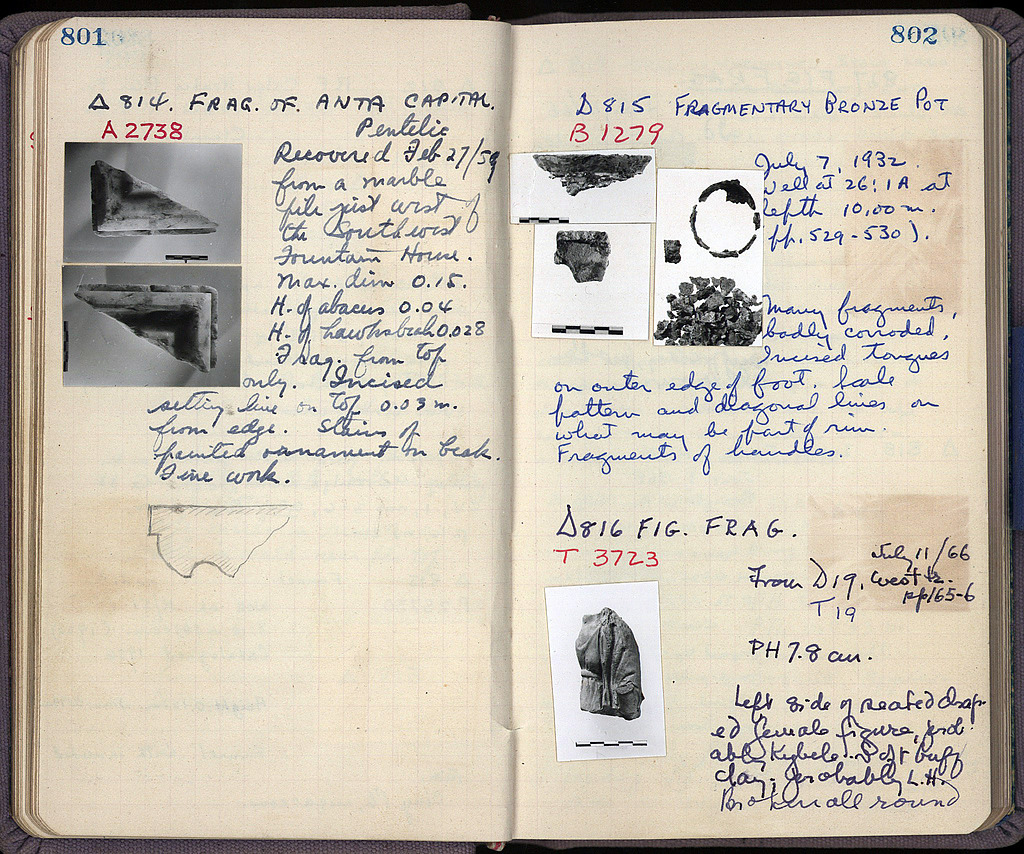 801
Δ 814. FRAG. OF ANTA CAPITAL.
A 2738
Pentelic
Recovered Feb 27/59
from a marble
pile just west of
the Southwest
Fountain House.
Max. dim 0.15.
H. of abacus 0.04
H. of hawksbeak 0.028
Frag. from top
only. Incised
setting line on top 0.03 m.
from edge. Stains of
painted ornament on beak.
Fine work.
802
Δ 815 FRAGMENTARY BRONZE POT
B 1279
July 7, 1932.
well at 26:1A at
depth 10.00 m.
pp. 529-530).
Many fragments,
badly corroded,
Incised tongues
on outer edge of foot. Scale
pattern and diagonal lines on
what may be part of rim.
Fragments of handles.
Δ816 FIG. FRAG.
T 3723
July 11/66
From D19, west
pp165-6
T 19
PH 7.8 cm.
Left side of seated drap-
ed female figure, prob-
ably Kybele. Soft buff
clay; probably L.H.
Broken all round